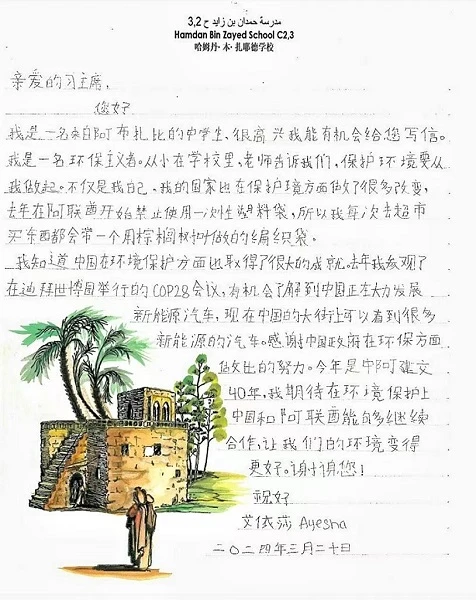 مدرسة حمدان بن زايد ح 3,2
Hamdan Bin Zayed School C2,3
哈姆丹·本·扎耶德学校
亲爱的习主席,
您好
我是一名来自阿布扎比的中学生,很高兴我能有机会给您写信。
我是一名环保主义者。从小在学校里,老师告诉我们,保护环境要从
我做起。不仅是我自己,我的国家也在保护环境方面做了很多改变,
去年在阿联酋开始禁止使用一次性塑料袋,所以我每次去超市
买东西都会带一个用棕榈树叶做的编织袋。
我知道中国在环境保护方面也取得了很大的成就。去年我参观了
在迪拜世博园举行的COP28会议,有机会了解到中国正在大力发展
新能源汽车,现在中国的大街上可以看到很多
新能源的汽车。感谢中国政府在环保方面
做出的努力。今年是中阿建交
40年,我期待在环境保护上
中国和阿联酋能够多继续
合作,让我们的环境变得
更好。谢谢您!
祝好
艾依莎 Ayesha
二〇二四年三月二十日